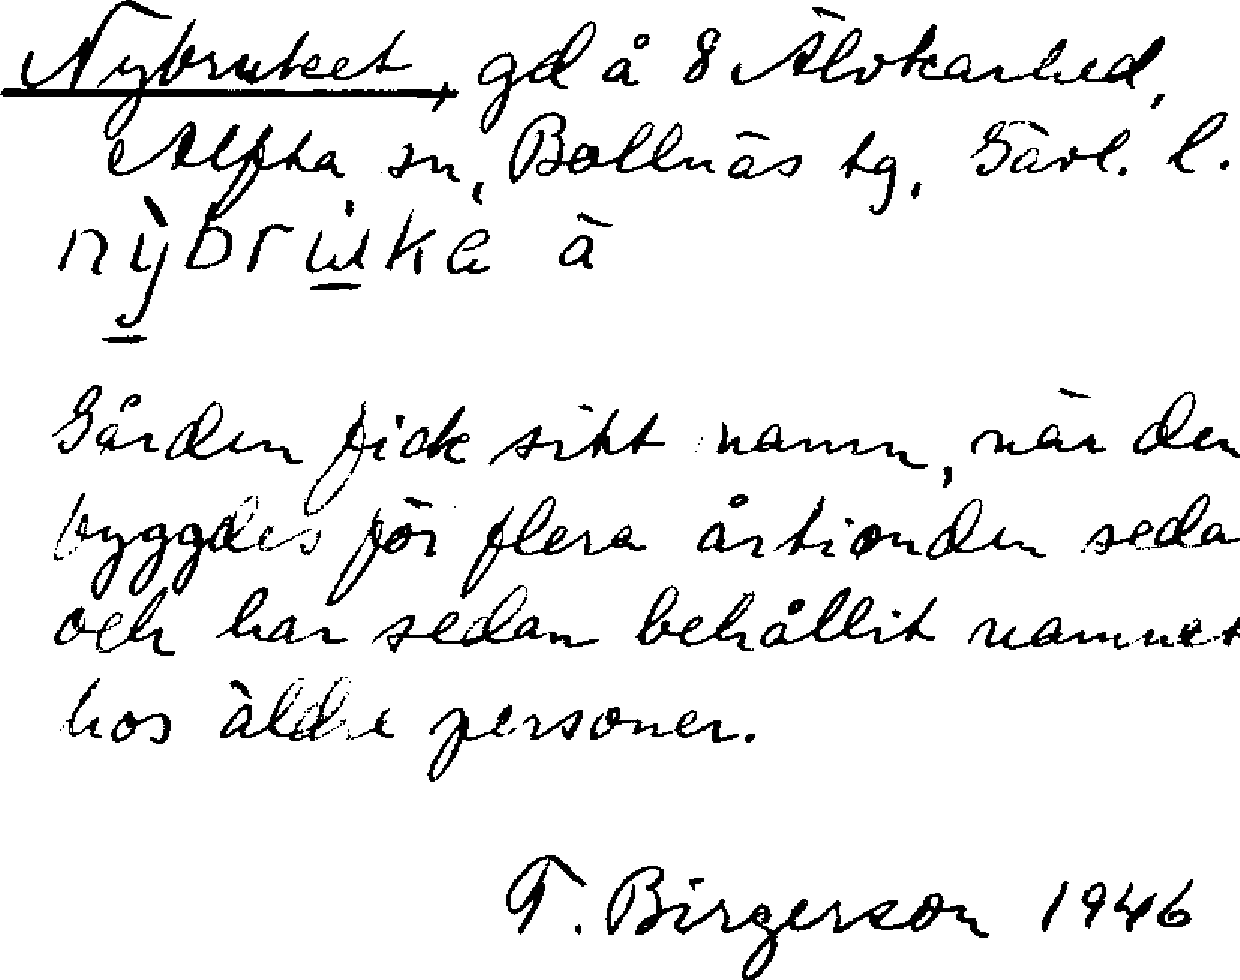 Nybruket, gd å 8 Älvkarhed,
Alfta sn, Bollnäs tg, Gävl. l.
nỳbrukè ä
Gården fick sitt namn, när den
byggdes för flera årtionden seda
och har sedan behållit namnet
hos äldre personer.
T. Birgerson 1946